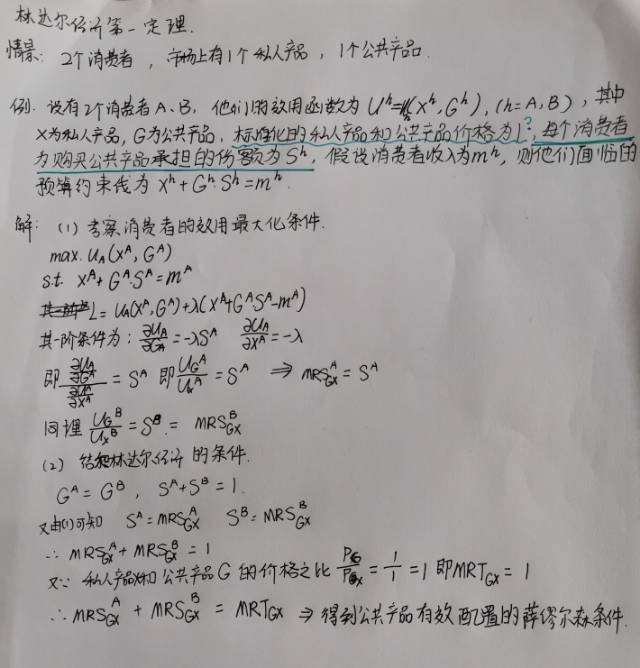 林达尔经济第一定理.
情景: 2个消费者, 市场上有1个私人产品, 1个公共产品.
例. 设有2个消费者A、B, 他们的效用函数为 Uʰ=Uₕ(Xʰ,Gʰ), (h=A,B), 其中
X为私人产品, G为公共产品, 标准化的私人产品和公共产品价格为1?, 每个消费者
为购买公共产品承担的份额为Sʰ, 假设消费者收入为mʰ, 则他们面临的
预算约束线为 xʰ+Gʰ·Sʰ=mʰ.
解: (1) 考察消费者的效用最大化条件.
max. U_A(X^A, G^A)
s.t. X^A+G^A·S^A=m^A
L=U_A(X^A,G^A)+λ(X^A+G^A S^A-m^A)
其一阶条件为: ∂U_A/∂G^A=-λS^A ∂U_A/∂X^A=-λ
即 (∂U_A/∂G^A)/(∂U_A/∂X^A) = S^A 即 U_G^A/U_X^A = S^A ⇒ MRS_GX^A = S^A
同理 U_G^B/U_X^B = S^B = MRS_GX^B
(2) 结合林达尔经济的条件.
G^A=G^B, S^A+S^B=1.
又由(1)可知 S^A=MRS_GX^A S^B=MRS_GX^B
∴ MRS_GX^A+MRS_GX^B=1
又∵ 私人产品X和公共产品G的价格之比 P_G/P_X=1/1=1 即MRT_GX=1
∴ MRS_GX^A + MRS_GX^B = MRT_GX ⇒ 得到公共产品有效配置的萨缪尔森条件.